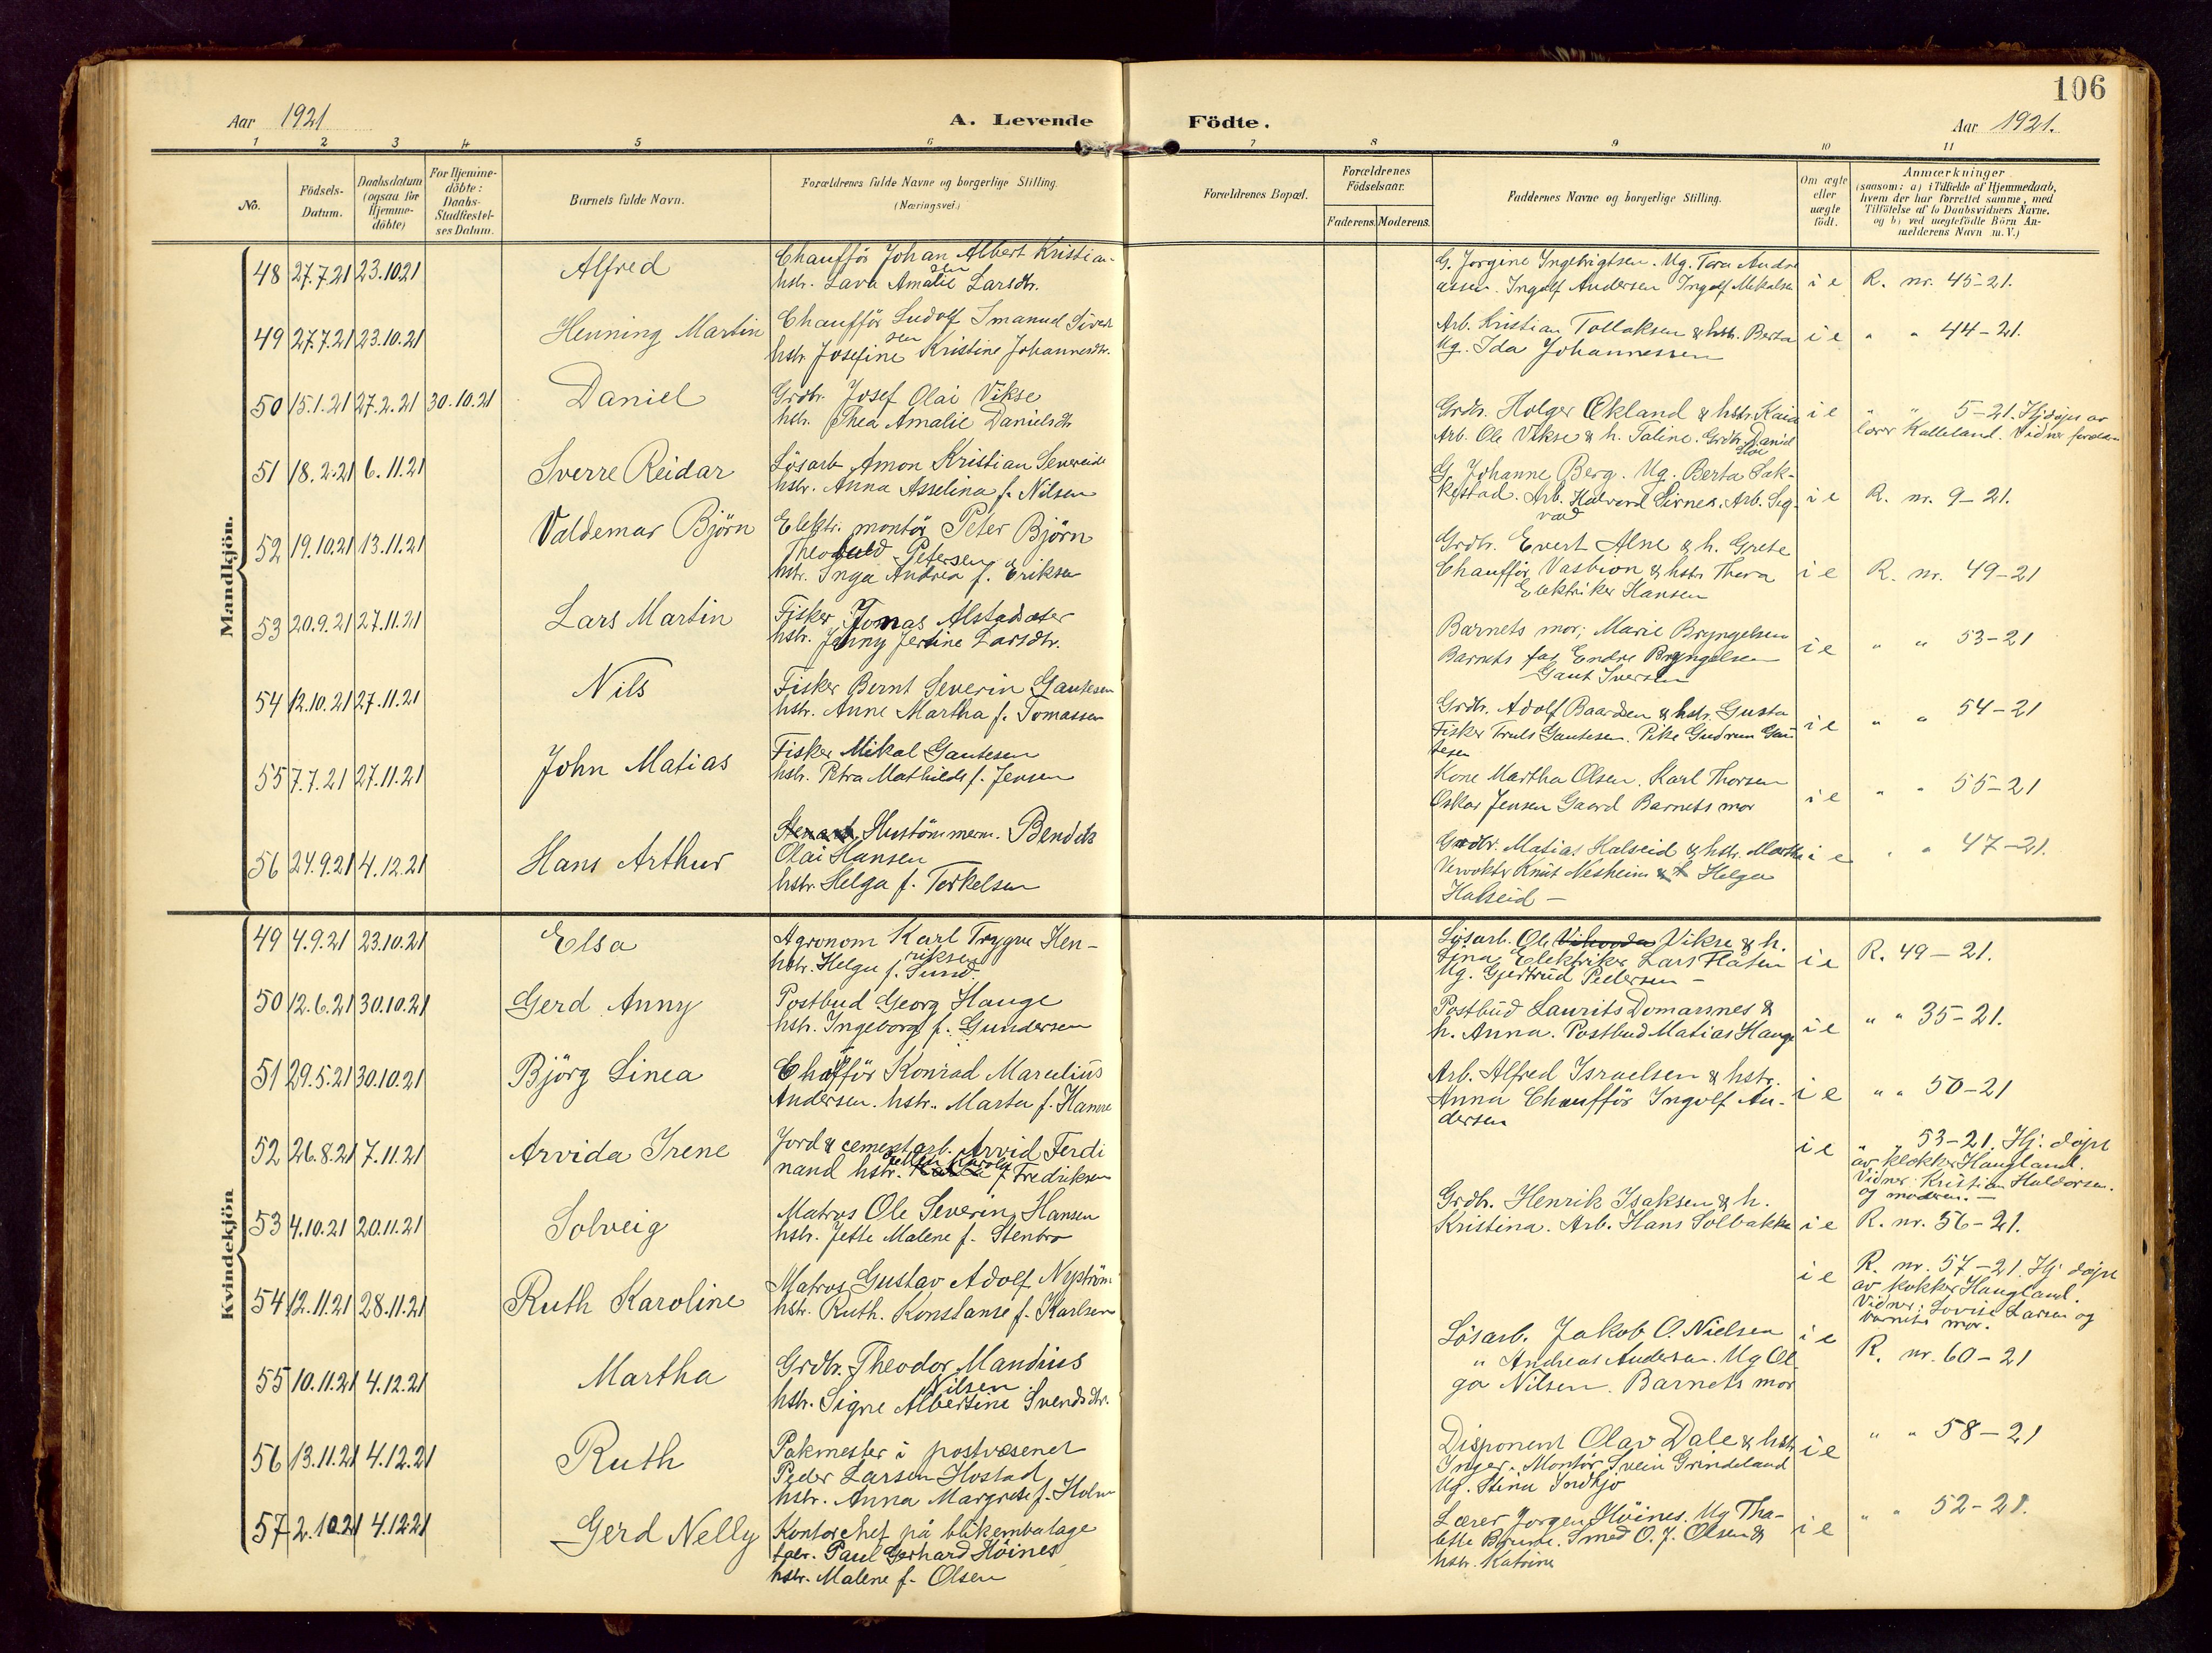 106
Aar 1921
A. Levende Födte.
Aar 1921.
1 2 3 4 5 6 7 8 9 10 11
No.
Födsels-
Datum.
Daabsdatum
(ogsaa for
Hjemme-
döbte)
For Hjemme-
döbte:
Daabs-
Stadfæstel-
ses Datum.
Barnets fulde Navn.
Forældrenes fulde Navne og borgerlige Stilling.
(Næringsvei.)
Forældrenes Bopæl.
Forældrenes
Födselsaar.
Faderens. Moderens.
Faddernes Navne og borgerlige Stilling.
Om ægte
eller
uægte
födt.
Anmærkninger
(saasom: a) i Tilfælde af Hjemmedaab,
hvem der har forrettet samme, med
Tilföielse af to Daabsvidners Navne.
og b) ved uægtefödte Börn An-
melderens Navn m. V.)
Mandkjön.
48 27.7.21 23.10.21 Alfred
Chaufför Johan Albert Kristian-
sen
hstr. Lava Amalie Larsdtr.
G. Jorgine Ingebrigtsen. Ug. Tora Andre
assen. Ingolf Andersen Ingolf Mikalsen
i e R. nr. 45-21.
49 27.7.21 23.10.21 Henning Martin
Chaufför Ludolf Imanuel Siver
sen
hstr. Josefine Kristine Johannesdtr.
Arb. Kristian Tollaksen & hstr. Berta
Ug. Ida Johannessen
i e " " 44-21.
50 15.1.21 27.2.21 30.10.21 Daniel
Grdbr. Josef Olai Vikse
hstr. Thea Amalie Danielsdtr
Grdbr. Holger Økland & hstr. Kaia
Arb. Ole Vikse & h. Taline. Grdbr. Daniel
i e " " 5-21. Hjdöpt av
lærer Kalleland. Vidner foreldre
51 18.2.21 6.11.21 Sverre Reidar
Lösarb Amon Kristian Severeide
hstr. Anna Asselina f. Nilsen
G. Johanne Berg. Ug. Berta Sak-
kestad. Arb. Halvord Sirnes. Arb. Sig-
vad
i e R. nr. 9-21.
52 19.10.21 13.11.21 Valdemar Björn
Elektr. montör Peter Björn
Theobald Petersen
hstr. Inga Andrea f. Eriksen
Grdbr. Evert Alne & h. Grete
Chaufför Vastveon & hstr Thora
Elektriker Hansen
i e R. nr. 49-21
53 20.9.21 27.11.21 Lars Martin
Fisker Tomas Alstadsæter
hstr. Jenny Jertine Larsdtr.
Barnets mor; Marie Bryngelsen
Barnets far Endre Bryngelsen
Gaut Iversen
i e " " 53-21
54 12.10.21 27.11.21 Nils
Fisker Bernt Severin Gautesen
hstr. Anne Martha f. Tomassen
Grdbr. Adolf Baardsen & hstr. Gusta
Fisker Truls Gautesen. Pike Gudrun Gau
tesen
i e " " 54-21
55 7.7.21 27.11.21 John Matias
Fisker Mikal Gautesen
hstr. Petra Mathilde f. Jensen
Kone Martha Olsen. Karl Thorsen
Oskar Jensen Gaard Barnets mor
i e " " 55-21
56 24.9.21 4.12.21 Hans Arthur
Hustömmerm. Bendik
Olai Hansen
hstr. Helga f. Torkelsen
Grdbr. Matias Halseid & hstr. Martha
Vervokter Knut Nesheim & Helga
Halseid -
i e " " 47-21.
Kvindekjön
49 4.9.21 23.10.21 Elsa
Agronom Karl Trygve Hen-
riksen
hstr. Helga f. Sund.
Lösarb. Ole Vikse & h.
Tina. Elektriker Lars Flåten
Ug. Gjertrud Pedersen -
i e R. 49 - 21.
50 12.6.21 30.10.21 Gerd Anny
Postbud Georg Hauge
hstr. Ingeborg f. Gundersen
Postbud Laurits Domasnes &
h. Anna. Postbud Matias Hauge
i e " " 35-21.
51 29.5.21 30.10.21 Björg Linea
Chaufför Konrad Marulius
Andersen. hstr. Marta f. Hamre
Arb. Alfred Israelsen & hstr.
Anna Chaufför Ingolf An-
dersen
i e " " 50-21
52 26.8.21 7.11.21 Arvida Irene
Jord & cementarb. Arvid Ferdi
nand hstr. Karola f. Fredriksen
i e " " 53-21. Hj. döpt
av klokker Haugland.
Vidner: Kristian Haldorsen.
og moderen. -
53 4.10.21 20.11.21 Solveig
Matros Ole Severin Hansen
hstr. Jette Malene f. Stenbro
Grdbr. Henrik Isaksen & h.
Kristina. Arb. Hans Solbakke
i e R. nr. 56-21.
54 12.11.21 28.11.21 Ruth Karoline
Matros Gustav Adolf Nyström
hstr. Ruth. Konstanse f. Karlsen
i e R. nr. 57-21. Hj döpt
av klokker Haugland.
Vidner: Lovise Larsen og
barnets mor.
55 10.11.21 4.12.21 Martha
Grdbr. Theodor Mandius
Nilsen
hstr. Signe Albertine Svendsdtr.
Lösarb. Jakob O. Nielsen
" Andreas Andersen. Ug Ol
ga Nilsen. Barnets mor
i e R. nr. 60-21
56 13.11.21 4.12.21 Ruth
Pakmester i postvæsenet
Peder Larsen Hostad
hstr. Anna Margrete f. Holm
Disponent Olav Dale & hstr
Inger. Montör Svein Grindeland
Ug. Stina Indhjo
i e " " 58-21
57 2.10.21 4.12.21 Gerd Nelly
Kontorchef på blikembalage
fabr. Paul Gerhard Höines
hstr. Malene f. Olsen
Lærer Jørgen Höines. Ug Tha-
lette Brune. Smed O. J. Olsen &
hstr. Katrine
i e " " 52-21.